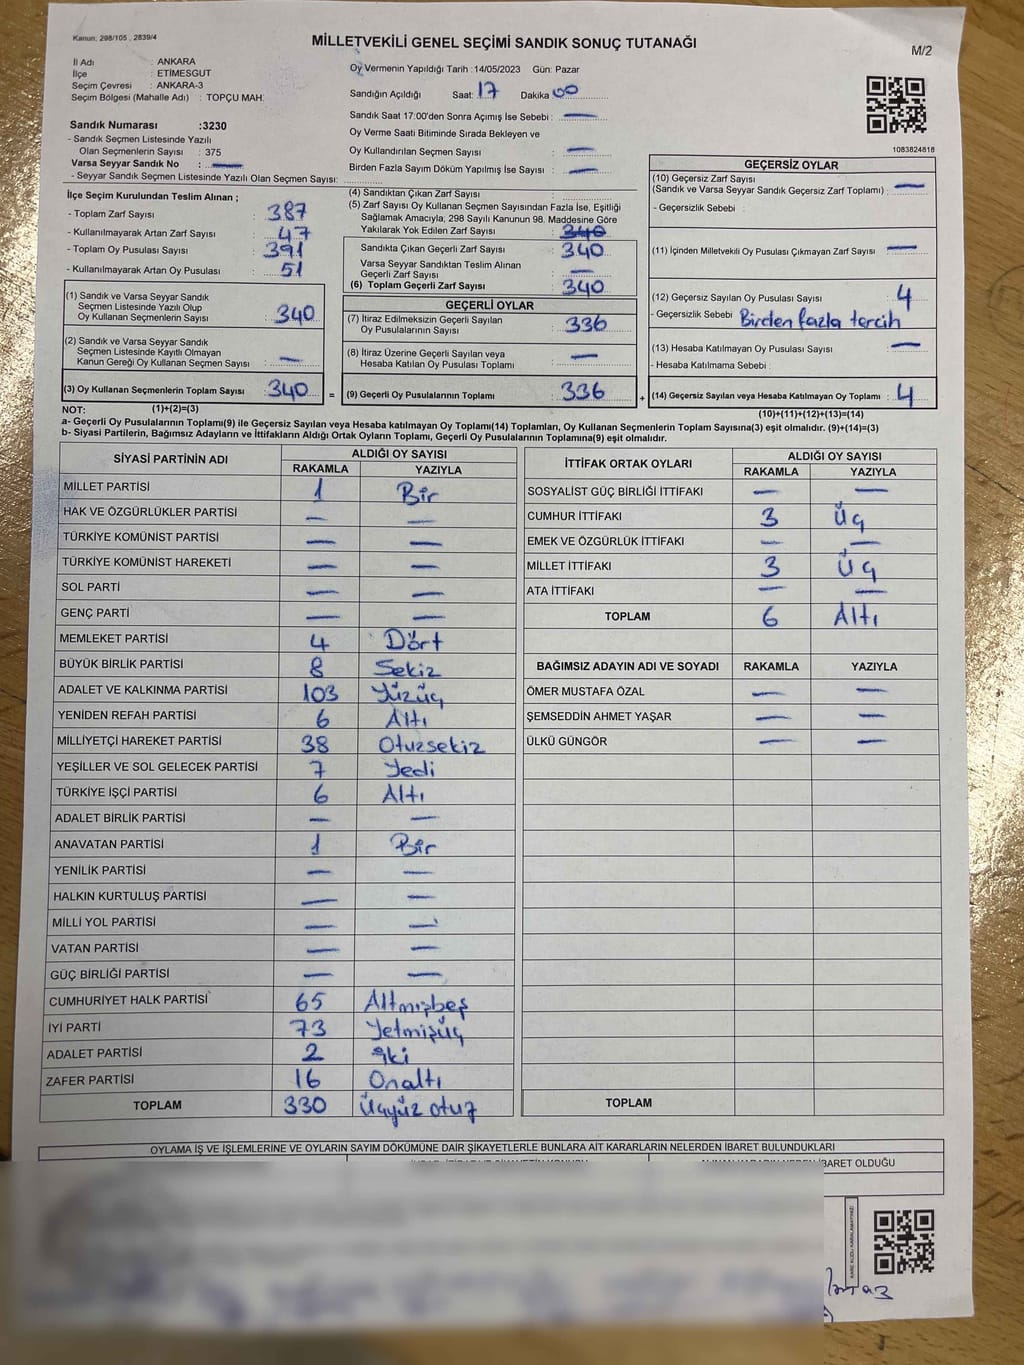 Kanun: 298/105 , 2839/4
MİLLETVEKİLİ GENEL SEÇİMİ SANDIK SONUÇ TUTANAĞI
M/2
İl Adı : ANKARA
İlçe : ETİMESGUT
Seçim Çevresi : ANKARA-3
Seçim Bölgesi (Mahalle Adı) : TOPÇU MAH.
Oy Vermenin Yapıldığı Tarih :14/05/2023 Gün: Pazar
Sandığın Açıldığı Saat: 17 Dakika 00
Sandık Numarası :3230
- Sandık Seçmen Listesinde Yazılı
Olan Seçmenlerin Sayısı : 375
Varsa Seyyar Sandık No : —
- Seyyar Sandık Seçmen Listesinde Yazılı Olan Seçmen Sayısı:
Sandık Saat 17:00'den Sonra Açımış İse Sebebi : —
Oy Verme Saati Bitiminde Sırada Bekleyen ve
Oy Kullandırılan Seçmen Sayısı : —
Birden Fazla Sayım Döküm Yapılmış İse Sayısı : —
1083824818
İlçe Seçim Kurulundan Teslim Alınan ;
- Toplam Zarf Sayısı : 387
- Kullanılmayarak Artan Zarf Sayısı : 47
- Toplam Oy Pusulası Sayısı : 391
- Kullanılmayarak Artan Oy Pusulası : 51
(1) Sandık ve Varsa Seyyar Sandık
Seçmen Listesinde Yazılı Olup
Oy Kullanan Seçmenlerin Sayısı : 340
(2) Sandık ve Varsa Seyyar Sandık
Seçmen Listesinde Kayıtlı Olmayan
Kanun Gereği Oy Kullanan Seçmen Sayısı : —
(3) Oy Kullanan Seçmenlerin Toplam Sayısı : 340 =
(1)+(2)=(3)
(4) Sandıktan Çıkan Zarf Sayısı :
(5) Zarf Sayısı Oy Kullanan Seçmen Sayısından Fazla İse, Eşitliği
Sağlamak Amacıyla, 298 Sayılı Kanunun 98. Maddesine Göre
Yakılarak Yok Edilen Zarf Sayısı : 340
Sandıkta Çıkan Geçerli Zarf Sayısı : 340
Varsa Seyyar Sandıktan Teslim Alınan
Geçerli Zarf Sayısı : —
(6) Toplam Geçerli Zarf Sayısı : 340
GEÇERLİ OYLAR
(7) İtiraz Edilmeksizin Geçerli Sayılan
Oy Pusulalarının Sayısı : 336
(8) İtiraz Üzerine Geçerli Sayılan veya
Hesaba Katılan Oy Pusulası Toplamı : —
(9) Geçerli Oy Pusulalarının Toplamı : 336 +
GEÇERSİZ OYLAR
(10) Geçersiz Zarf Sayısı
(Sandık ve Varsa Seyyar Sandık Geçersiz Zarf Toplamı) : —
- Geçersizlik Sebebi :
(11) İçinden Milletvekili Oy Pusulası Çıkmayan Zarf Sayısı : —
(12) Geçersiz Sayılan Oy Pusulası Sayısı : 4
- Geçersizlik Sebebi : Birden fazla tercih
(13) Hesaba Katılmayan Oy Pusulası Sayısı : —
- Hesaba Katılmama Sebebi :
(14) Geçersiz Sayılan veya Hesaba Katılmayan Oy Toplamı : 4
(10)+(11)+(12)+(13)=(14)
NOT:
a- Geçerli Oy Pusulalarının Toplamı(9) ile Geçersiz Sayılan veya Hesaba katılmayan Oy Toplamı(14) Toplamları, Oy Kullanan Seçmenlerin Toplam Sayısına(3) eşit olmalıdır. (9)+(14)=(3)
b- Siyasi Partilerin, Bağımsız Adayların ve İttifakların Aldığı Ortak Oyların Toplamı, Geçerli Oy Pusulalarının Toplamına(9) eşit olmalıdır.
SİYASİ PARTİNİN ADI ALDIĞI OY SAYISI
RAKAMLA YAZIYLA
MİLLET PARTİSİ 1 Bir
HAK VE ÖZGÜRLÜKLER PARTİSİ — —
TÜRKİYE KOMÜNİST PARTİSİ — —
TÜRKİYE KOMÜNİST HAREKETİ — —
SOL PARTİ — —
GENÇ PARTİ — —
MEMLEKET PARTİSİ 4 Dört
BÜYÜK BİRLİK PARTİSİ 8 Sekiz
ADALET VE KALKINMA PARTİSİ 103 Yüzüç
YENİDEN REFAH PARTİSİ 6 Altı
MİLLİYETÇİ HAREKET PARTİSİ 38 Otuzsekiz
YEŞİLLER VE SOL GELECEK PARTİSİ 7 Yedi
TÜRKİYE İŞÇİ PARTİSİ 6 Altı
ADALET BİRLİK PARTİSİ — —
ANAVATAN PARTİSİ 1 Bir
YENİLİK PARTİSİ — —
HALKIN KURTULUŞ PARTİSİ — —
MİLLİ YOL PARTİSİ — —
VATAN PARTİSİ — —
GÜÇ BİRLİĞİ PARTİSİ — —
CUMHURİYET HALK PARTİSİ 65 Altmışbeş
İYİ PARTİ 73 Yetmişüç
ADALET PARTİSİ 2 iki
ZAFER PARTİSİ 16 Onaltı
TOPLAM 330 üçyüz otuz
İTTİFAK ORTAK OYLARI ALDIĞI OY SAYISI
RAKAMLA YAZIYLA
SOSYALİST GÜÇ BİRLİĞİ İTTİFAKI — —
CUMHUR İTTİFAKI 3 Üç
EMEK VE ÖZGÜRLÜK İTTİFAKI — —
MİLLET İTTİFAKI 3 Üç
ATA İTTİFAKI — —
TOPLAM 6 Altı
BAĞIMSIZ ADAYIN ADI VE SOYADI RAKAMLA YAZIYLA
ÖMER MUSTAFA ÖZAL — —
ŞEMSEDDİN AHMET YAŞAR — —
ÜLKÜ GÜNGÖR — —
TOPLAM
OYLAMA İŞ VE İŞLEMLERİNE VE OYLARIN SAYIM DÖKÜMÜNE DAİR ŞİKAYETLERLE BUNLARA AİT KARARLARIN NELERDEN İBARET BULUNDUKLARI
İBARET OLDUĞU